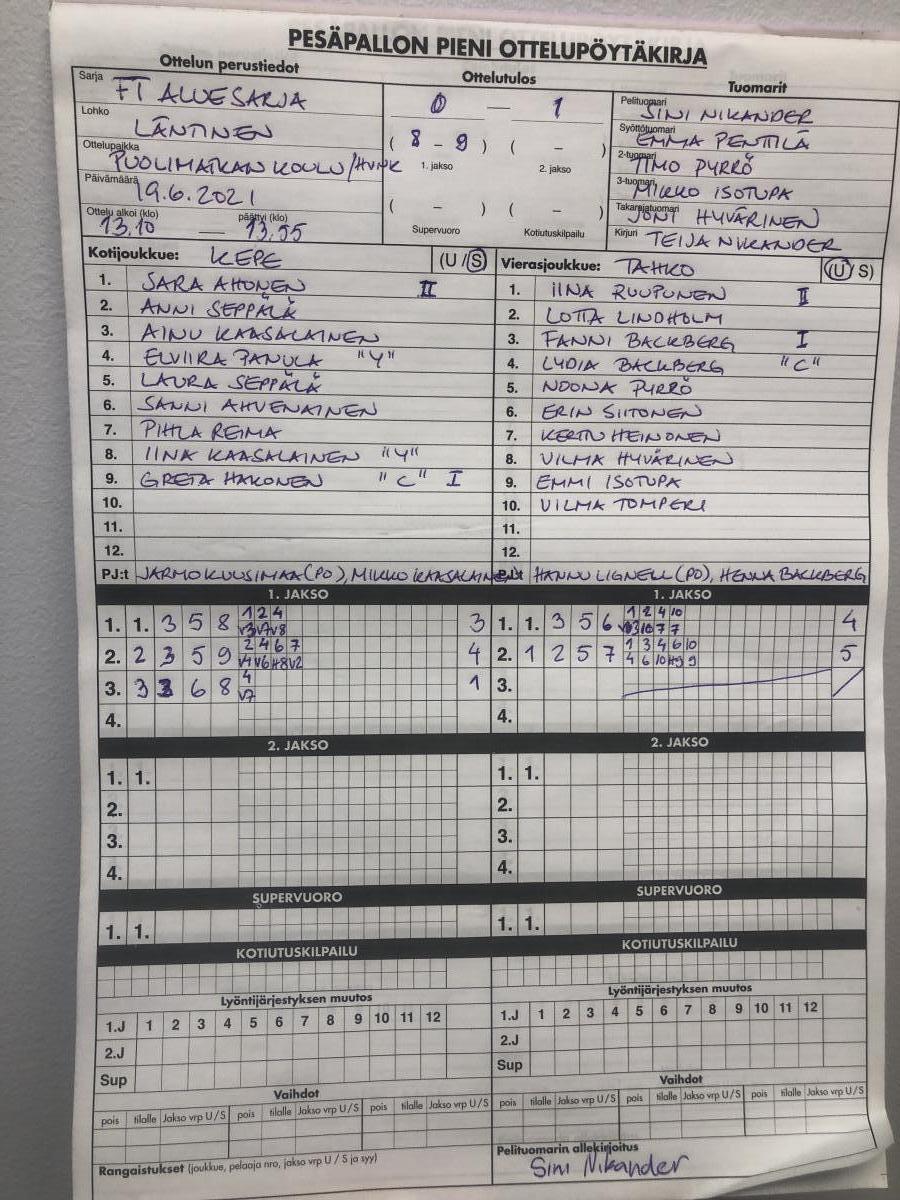 PESÄPALLON PIENI OTTELUPÖYTÄKIRJA
Ottelun perustiedot
Sarja FT ALUESARJA
Lohko LÄNTINEN
Ottelupaikka PUOLIMATKAN KOULU/HVNK
Päivämäärä 19.6.2021
Ottelu alkoi (klo) päättyi (klo)
13.10 — 13.55
Ottelutulos
0 — 1
( 8 - 9 ) ( - )
1. jakso 2. jakso
( - ) ( - )
Supervuoro Kotiutuskilpailu
Tuomarit
Pelituomari SINI NIKANDER
Syöttötuomari EMMA PENTTILÄ
2-tuomari TIMO PYRRÖ
3-tuomari MIKKO ISOTUPA
Takarajatuomari JONI HYVÄRINEN
Kirjuri TEIJA NIKANDER
Kotijoukkue: KEPE (U / S)
1. SARA AHONEN II
2. ANNI SEPPÄLÄ
3. AINU KAASALAINEN
4. ELVIIRA PANULA "Y"
5. LAURA SEPPÄLÄ
6. SANNI AHVENAINEN
7. PIHLA REIMA
8. IINA KAASALAINEN "Y"
9. GRETA HAKONEN "C" I
10.
11.
12.
PJ:t JARMO KUUSIMAA (PO), MIKKO KAASALAINEN
Vierasjoukkue: TAHKO (U / S)
1. IINA RUUPUNEN II
2. LOTTA LINDHOLM
3. FANNI BACKBERG I
4. LYDIA BACKBERG "C"
5. NOONA PYRRÖ
6. ERIN SIITONEN
7. KERTU HEINONEN
8. VILMA HYVÄRINEN
9. EMMI ISOTUPA
10. VILMA TOMPERI
11.
12.
PJ:t HANNU LIGNELL (PO), HENNA BACKBERG
1. JAKSO
1. 1. 3 5 8 1 2 4 3
V3 V7 V8
2. 2 3 5 9 2 4 6 7 4
V4 V6 H8 V2
3. 3 3 6 8 4 1
V7
4.
2. JAKSO
1. 1.
2.
3.
4.
SUPERVUORO
1. 1.
KOTIUTUSKILPAILU
Lyöntijärjestyksen muutos
1.J 1 2 3 4 5 6 7 8 9 10 11 12
2.J
Sup
Vaihdot
pois tilalle Jakso vrp U / S pois tilalle Jakso vrp U / S pois tilalle Jakso vrp U / S
Rangaistukset (joukkue, pelaaja nro, jakso vrp U / S ja syy)
1. JAKSO
1. 1. 3 5 6 1 2 4 10 4
3 10 7 7
2. 1 2 5 7 1 3 4 6 10 5
4 6 10 H9 9
3.
4.
2. JAKSO
1. 1.
2.
3.
4.
SUPERVUORO
1. 1.
KOTIUTUSKILPAILU
Lyöntijärjestyksen muutos
1.J 1 2 3 4 5 6 7 8 9 10 11 12
2.J
Sup
Vaihdot
pois tilalle Jakso vrp U / S pois tilalle Jakso vrp U / S pois tilalle Jakso vrp U / S
Pelituomarin allekirjoitus
Sini Nikander